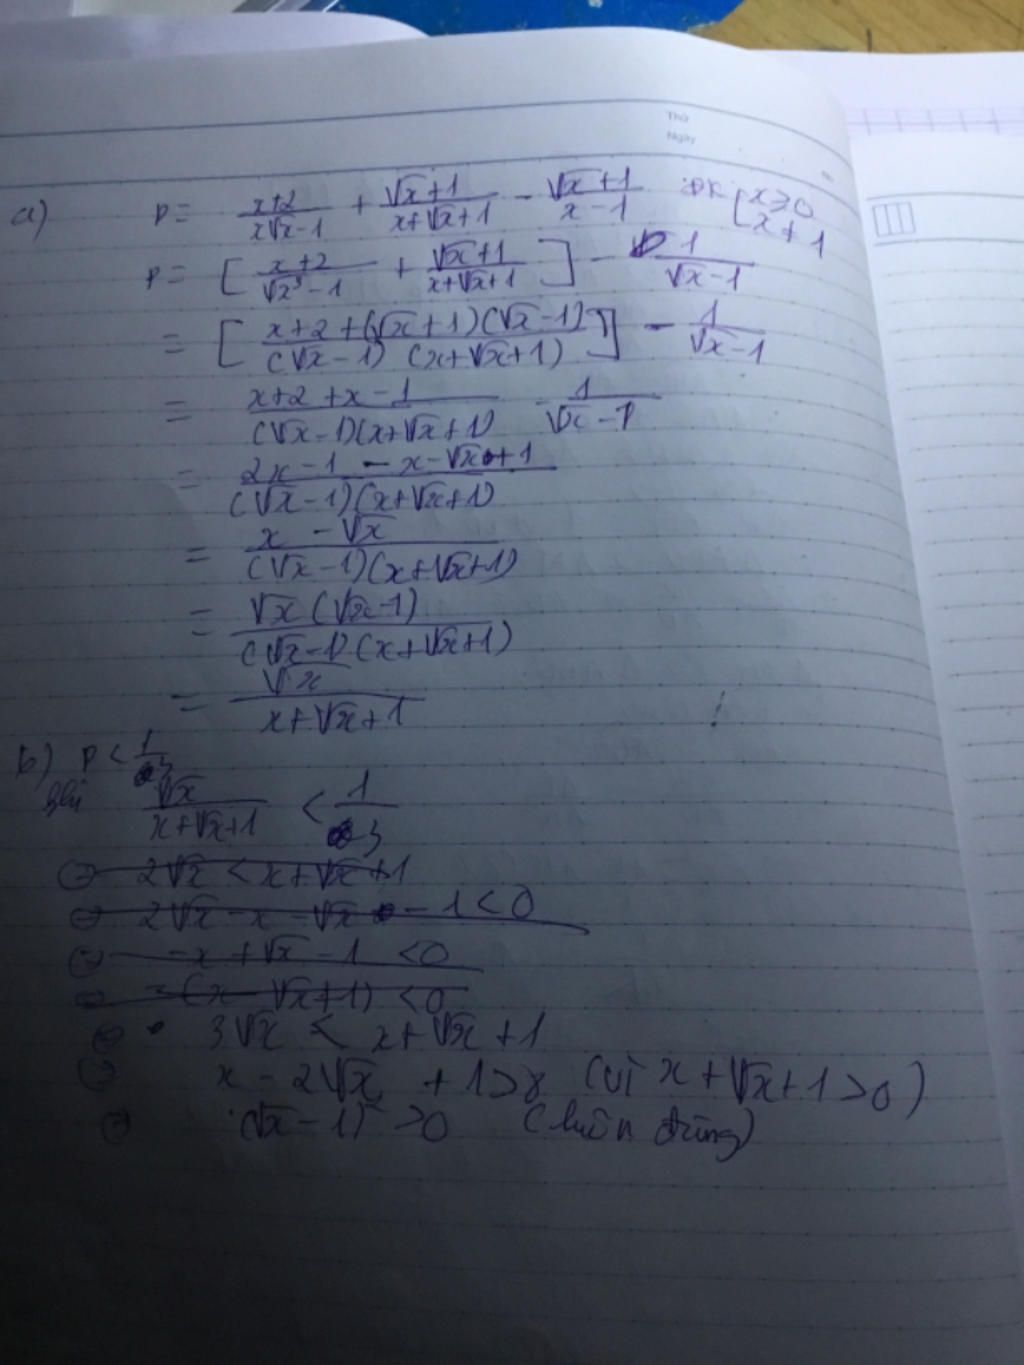 Thứ
Ngày
a) P = \frac{x+2}{x\sqrt{x}-1} + \frac{\sqrt{x}+1}{x+\sqrt{x}+1} - \frac{\sqrt{x}+1}{x-1} ĐK [x ≥ 0
x ≠ 1
P = [\frac{x+2}{\sqrt{x}^3-1} + \frac{\sqrt{x}+1}{x+\sqrt{x}+1}] - \frac{1}{\sqrt{x}-1}
= [\frac{x+2+(\sqrt{x}+1)(\sqrt{x}-1)}{(\sqrt{x}-1)(x+\sqrt{x}+1)}] - \frac{1}{\sqrt{x}-1}
= \frac{x+2+x-1}{(\sqrt{x}-1)(x+\sqrt{x}+1)} - \frac{1}{\sqrt{x}-1}
= \frac{2x-1-x-\sqrt{x}+1}{(\sqrt{x}-1)(x+\sqrt{x}+1)}
= \frac{x-\sqrt{x}}{(\sqrt{x}-1)(x+\sqrt{x}+1)}
= \frac{\sqrt{x}(\sqrt{x}-1)}{(\sqrt{x}-1)(x+\sqrt{x}+1)}
= \frac{\sqrt{x}}{x+\sqrt{x}+1}
b) P < \frac{1}{3}
khi \frac{\sqrt{x}}{x+\sqrt{x}+1} < \frac{1}{3}
⇔ 2\sqrt{x} < x+\sqrt{x}+1
⇔ 2\sqrt{x} - x - \sqrt{x} - 1 < 0
⇔ -x + \sqrt{x} - 1 < 0
⇔ -(x-\sqrt{x}+1) < 0
⇔ 3\sqrt{x} < x+\sqrt{x}+1
⇔ x - 2\sqrt{x} + 1 > (vì x+\sqrt{x}+1 > 0)
⇔ (\sqrt{x}-1)² > 0 (luôn đúng)